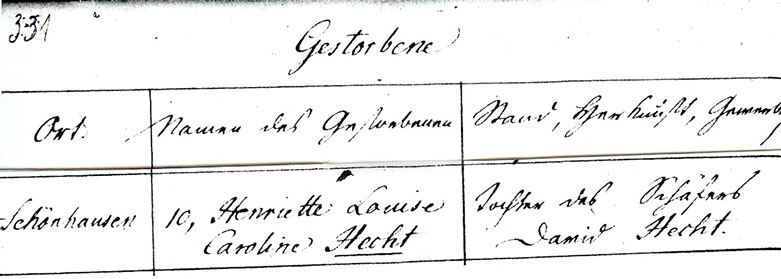 331
Gestorbene
Ort. Namen des Gestorbenen Stand, Herkunft, Gewerb
Schönhausen 10, Henriette Louise Tochter des Schäfers
Caroline Hecht David Hecht.